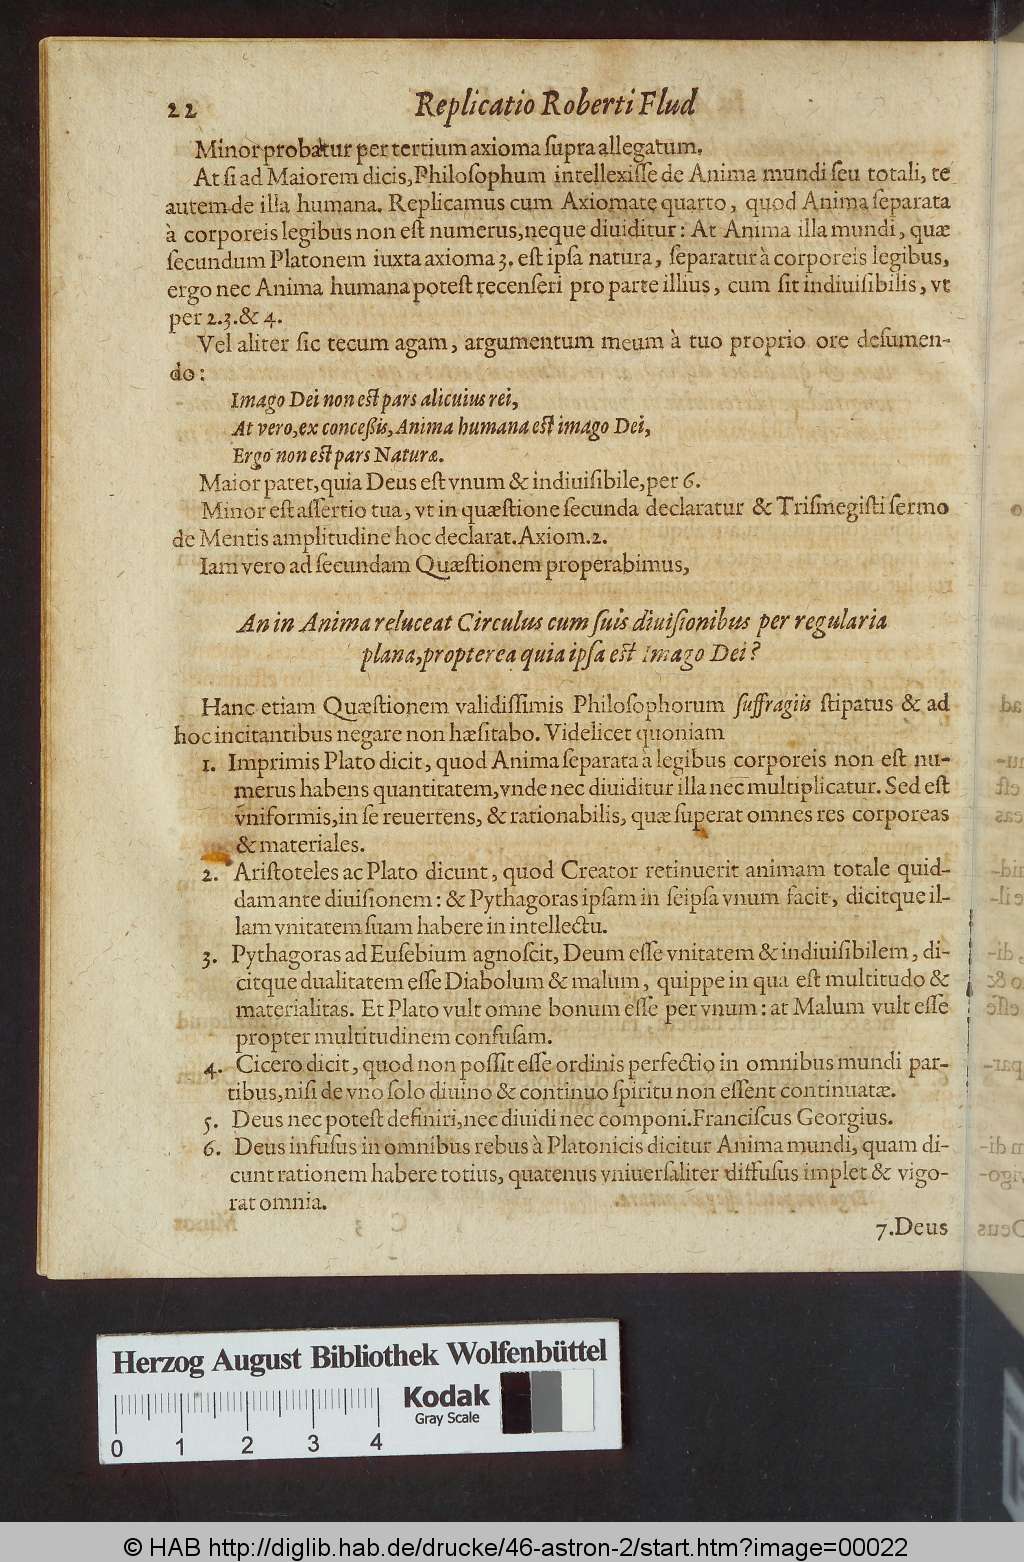 22 Replicatio Roberti Flud
Minor probatur per tertium axioma ſupra allegatum.
At ſi ad Maiorem dicis, Philoſophum intellexiſſe de Anima mundi ſeu totali, te
autem de illa humana. Replicamus cum Axiomate quarto, quod Anima ſeparata
à corporeis legibus non eſt numerus, neque diuiditur: At Anima illa mundi, quæ
ſecundum Platonem iuxta axioma 3. eſt ipſa natura, ſeparatur à corporeis legibus,
ergo nec Anima humana poteſt recenſeri pro parte illius, cum ſit indiuiſibilis, vt
per 2.3.& 4.
Vel aliter ſic tecum agam, argumentum meum à tuo proprio ore deſumen-
do:
Imago Dei non eſt pars alicuius rei,
At vero, ex conceßis, Anima humana eſt imago Dei,
Ergo non eſt pars Naturæ.
Maior patet, quia Deus eſt vnum & indiuiſibile, per 6.
Minor eſt aſſertio tua, vt in quæſtione ſecunda declaratur & Triſmegiſti ſermo
de Mentis amplitudine hoc declarat. Axiom. 2.
Iam vero ad ſecundam Quæſtionem properabimus,
An in Anima reluceat Circulus cum ſuis diuiſionibus per regularia
plana, propterea quia ipſa eſt Imago Dei?
Hanc etiam Quæſtionem validiſſimis Philoſophorum ſuffragiis ſtipatus & ad
hoc incitantibus negare non hæſitabo. Videlicet quoniam
1. Imprimis Plato dicit, quod Anima ſeparata à legibus corporeis non eſt nu-
merus habens quantitatem, vnde nec diuiditur illa nec multiplicatur. Sed eſt
vniformis, in ſe reuertens, & rationabilis, quæ ſuperat omnes res corporeas
& materiales.
2. Ariſtoteles ac Plato dicunt, quod Creator retinuerit animam totale quid-
dam ante diuiſionem: & Pythagoras ipſam in ſeipſa vnum facit, dicitque il-
lam vnitatem ſuam habere in intellectu.
3. Pythagoras ad Euſebium agnoſcit, Deum eſſe vnitatem & indiuiſibilem, di-
citque dualitatem eſſe Diabolum & malum, quippe in qua eſt multitudo &
materialitas. Et Plato vult omne bonum eſſe per vnum: at Malum vult eſſe
propter multitudinem confuſam.
4. Cicero dicit, quod non poſſit eſſe ordinis perfectio in omnibus mundi par-
tibus, niſi de vno ſolo diuino & continuo ſpiritu non eſſent continuatæ.
5. Deus nec poteſt definiri, nec diuidi nec componi. Franciſcus Georgius.
6. Deus infuſus in omnibus rebus à Platonicis dicitur Anima mundi, quam di-
cunt rationem habere totius, quatenus vniuerſaliter diffuſus implet & vigo-
rat omnia.
7. Deus
Herzog August Bibliothek Wolfenbüttel
Kodak
Gray Scale
0 1 2 3 4
© HAB http://diglib.hab.de/drucke/46-astron-2/start.htm?image=00022